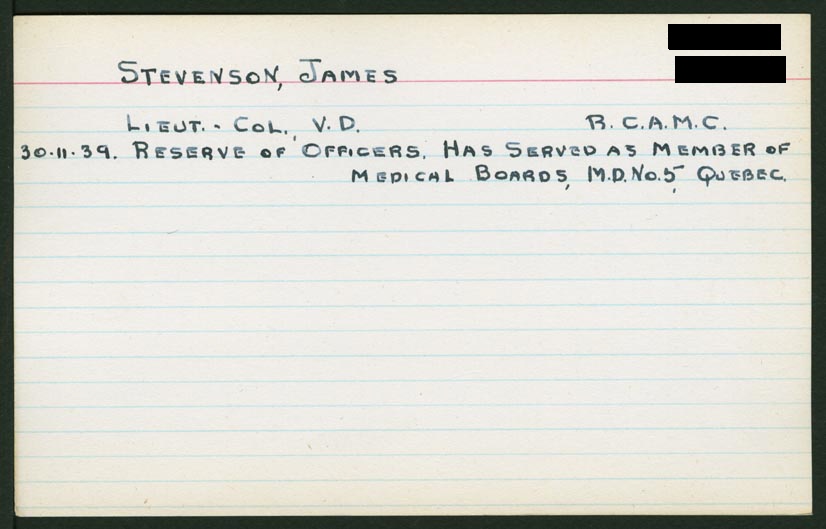 STEVENSON, JAMES
LIEUT. - COL., V.D. R.C.A.M.C.
30.11.39. RESERVE OF OFFICERS. HAS SERVED AS MEMBER OF
MEDICAL BOARDS, M.D. No. 5, QUEBEC.